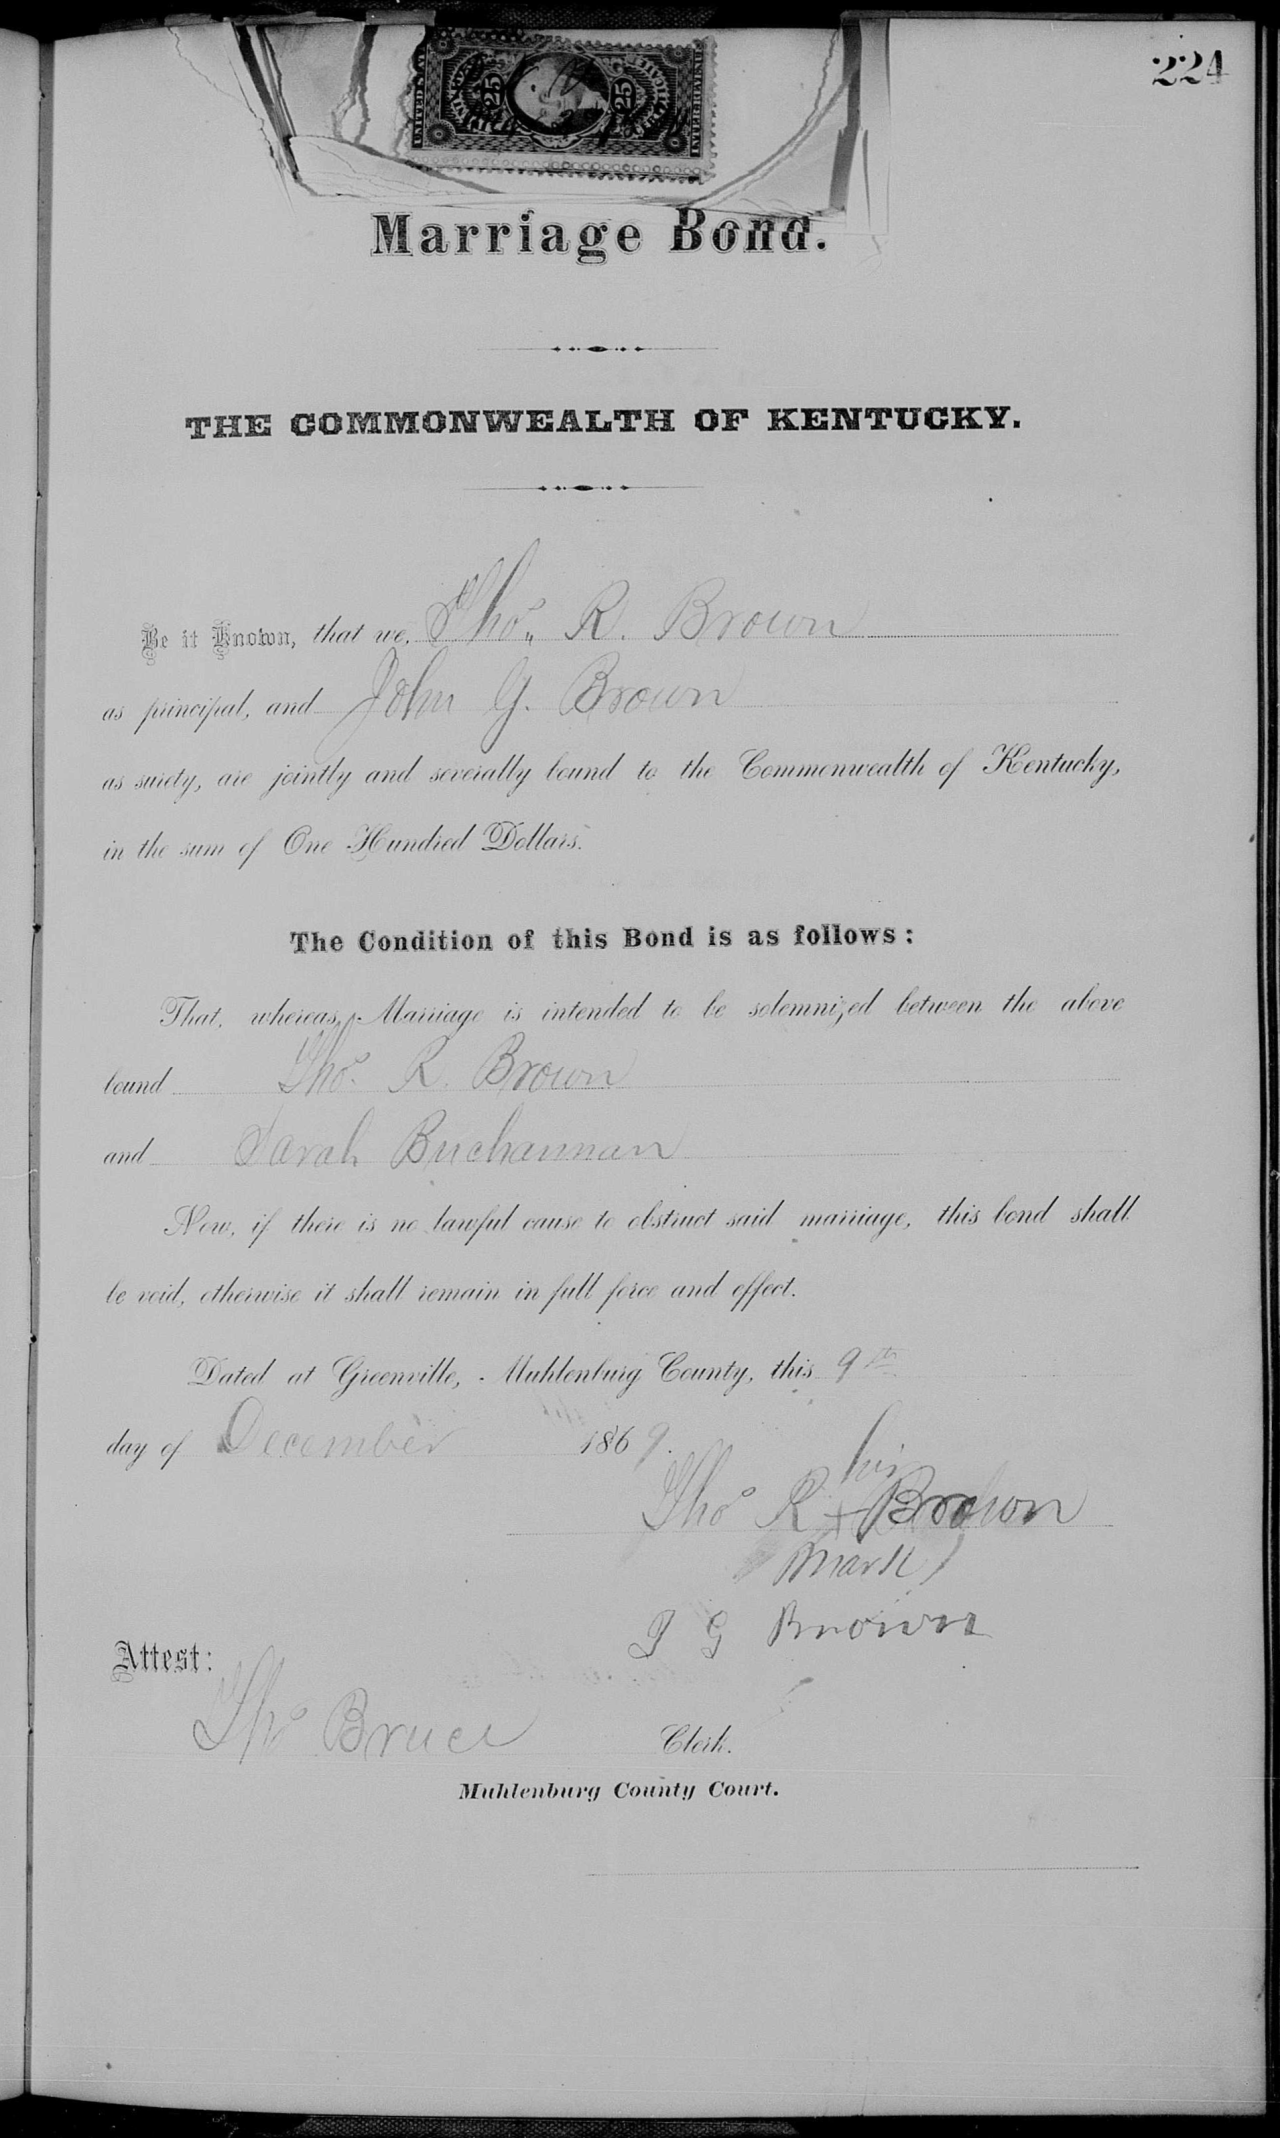 224
UNITED STATES
25
25
CERTIFICATE
INTER. REVENUE
Marriage Bond.
THE COMMONWEALTH OF KENTUCKY.
Be it Known, that we, Tho. R. Brown
as principal, and John G. Brown
as surety, are jointly and severally bound to the Commonwealth of Kentucky,
in the sum of One Hundred Dollars.
The Condition of this Bond is as follows:
That, whereas, Marriage is intended to be solemnized between the above
bound Tho. R. Brown
and Sarah Buchannan
Now, if there is no lawful cause to obstruct said marriage, this bond shall
be void, otherwise it shall remain in full force and effect.
Dated at Greenville, Muhlenburg County, this 9th
day of December 1869.
his
Tho R + Brown
mark
J G Brown
Attest:
Tho Bruce Clerk.
Muhlenburg County Court.